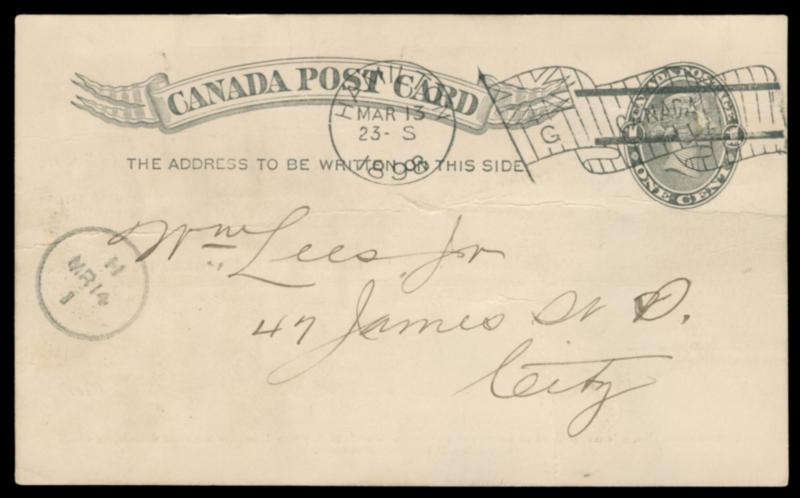 CANADA POST CARD
THE ADDRESS TO BE WRITTEN ON THIS SIDE
HAMILTON
MAR 13
23- S
1898
G
CANADA
CANADA POSTAGE
ONE CENT
H
MR 14
1
Wm Lees, Jr
47 James St
City